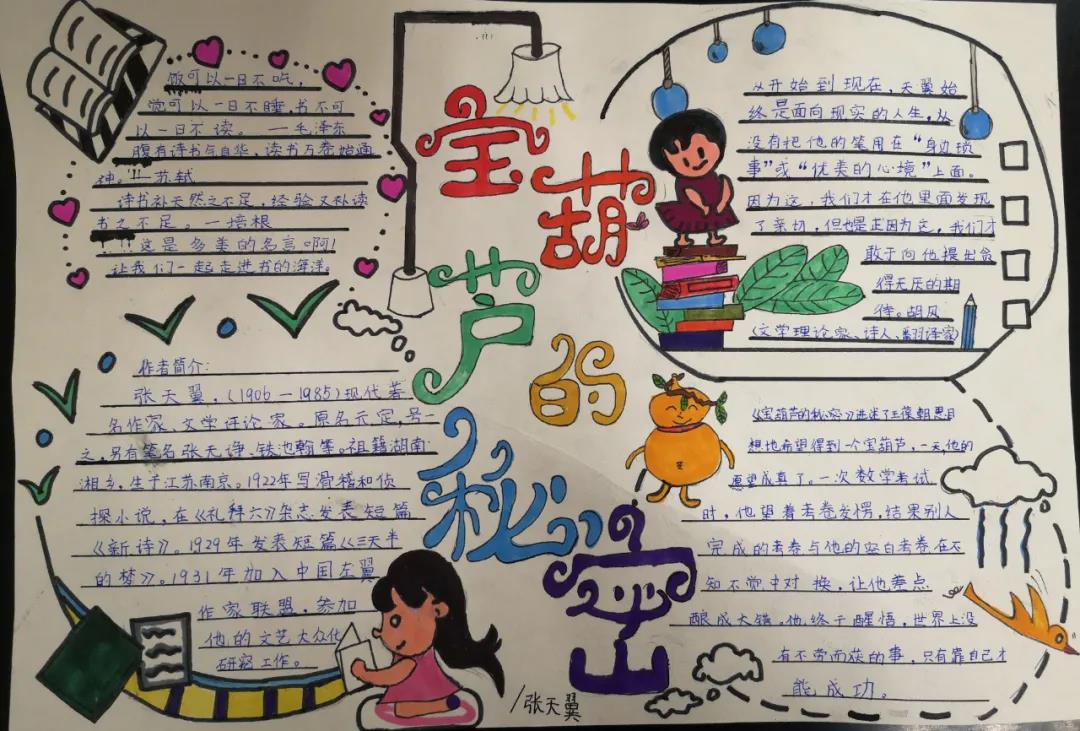 饭可以一日不吃，
觉可以一日不睡，书不可
以一日不读。 —毛泽东
腹有诗书气自华，读书万卷始通
神。——苏轼
读书补天然之不足，经验又补读
书之不足。 —培根
这是多美的名言啊！
让我们一起走进书的海洋。
宝葫
芦的
秘密
/张天翼
从开始到现在，天翼始
终是面向现实的人生，从
没有把他的笔用在“身边琐
事”或“优美的心境”上面。
因为这，我们才在他里面发现
了亲切，但也是正因为这，我们才
敢于向他提出贪
得无厌的期
待。胡风
（文学理论家、诗人、翻译家）
作者简介：
张天翼，（1906—1985）现代著
名作家、文学评论家。原名元定，号一
之，另有笔名张无诤、铁池翰等。祖籍湖南
湘乡，生于江苏南京。1922年写滑稽和侦
探小说，在《礼拜六》杂志发表短篇
《新诗》。1929年发表短篇《三天半
的梦》。1931年加入中国左翼
作家联盟，参加
他的文艺大众化
研究工作。
《宝葫芦的秘密》讲述了王葆朝思日
想地希望得到一个宝葫芦，一天他的
愿望成真了。一次数学考试
时，他望着考卷发愣，结果别人
完成的考卷与他的空白考卷在不
知不觉中对换，让他差点
酿成大错。他终于醒悟，世界上没
有不劳而获的事，只有靠自己才
能成功。